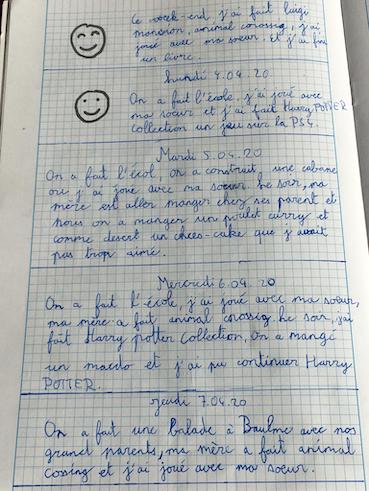 Ce week-end, j'ai fait luigi
mansion, animal crossig, j'ai
joué avec ma sœur. Et j'ai fini
un livre.
Lundi 4.04.20
On a fait l'école, j'ai joué avec
ma sœur et j'ai fait Harry POTTER
collection un jeu sur la PS4.
Mardi 5.04.20
On a fait l'écol, on a construit une cabane
ou j'ai joué avec ma sœur. Le soir, ma
mère est aller manger chez ses parent et
nous on a manger un poulet curry et
comme desert un chees-cake que j'avait
pas trop aimé.
Mercredi 6.04.20
On a fait l'école, j'ai joué avec ma sœur,
ma mère a fait animal crossig. Le soir, j'ai
fait Harry potter collection, On a mangé
un macdo et j'ai pu continuer Harry
POTTER.
jeudi 7.04.20
On a fait une balade à Baulme avec nos
grand parents, ma mère a fait animal
cossing et j'ai joué avec ma sœur.